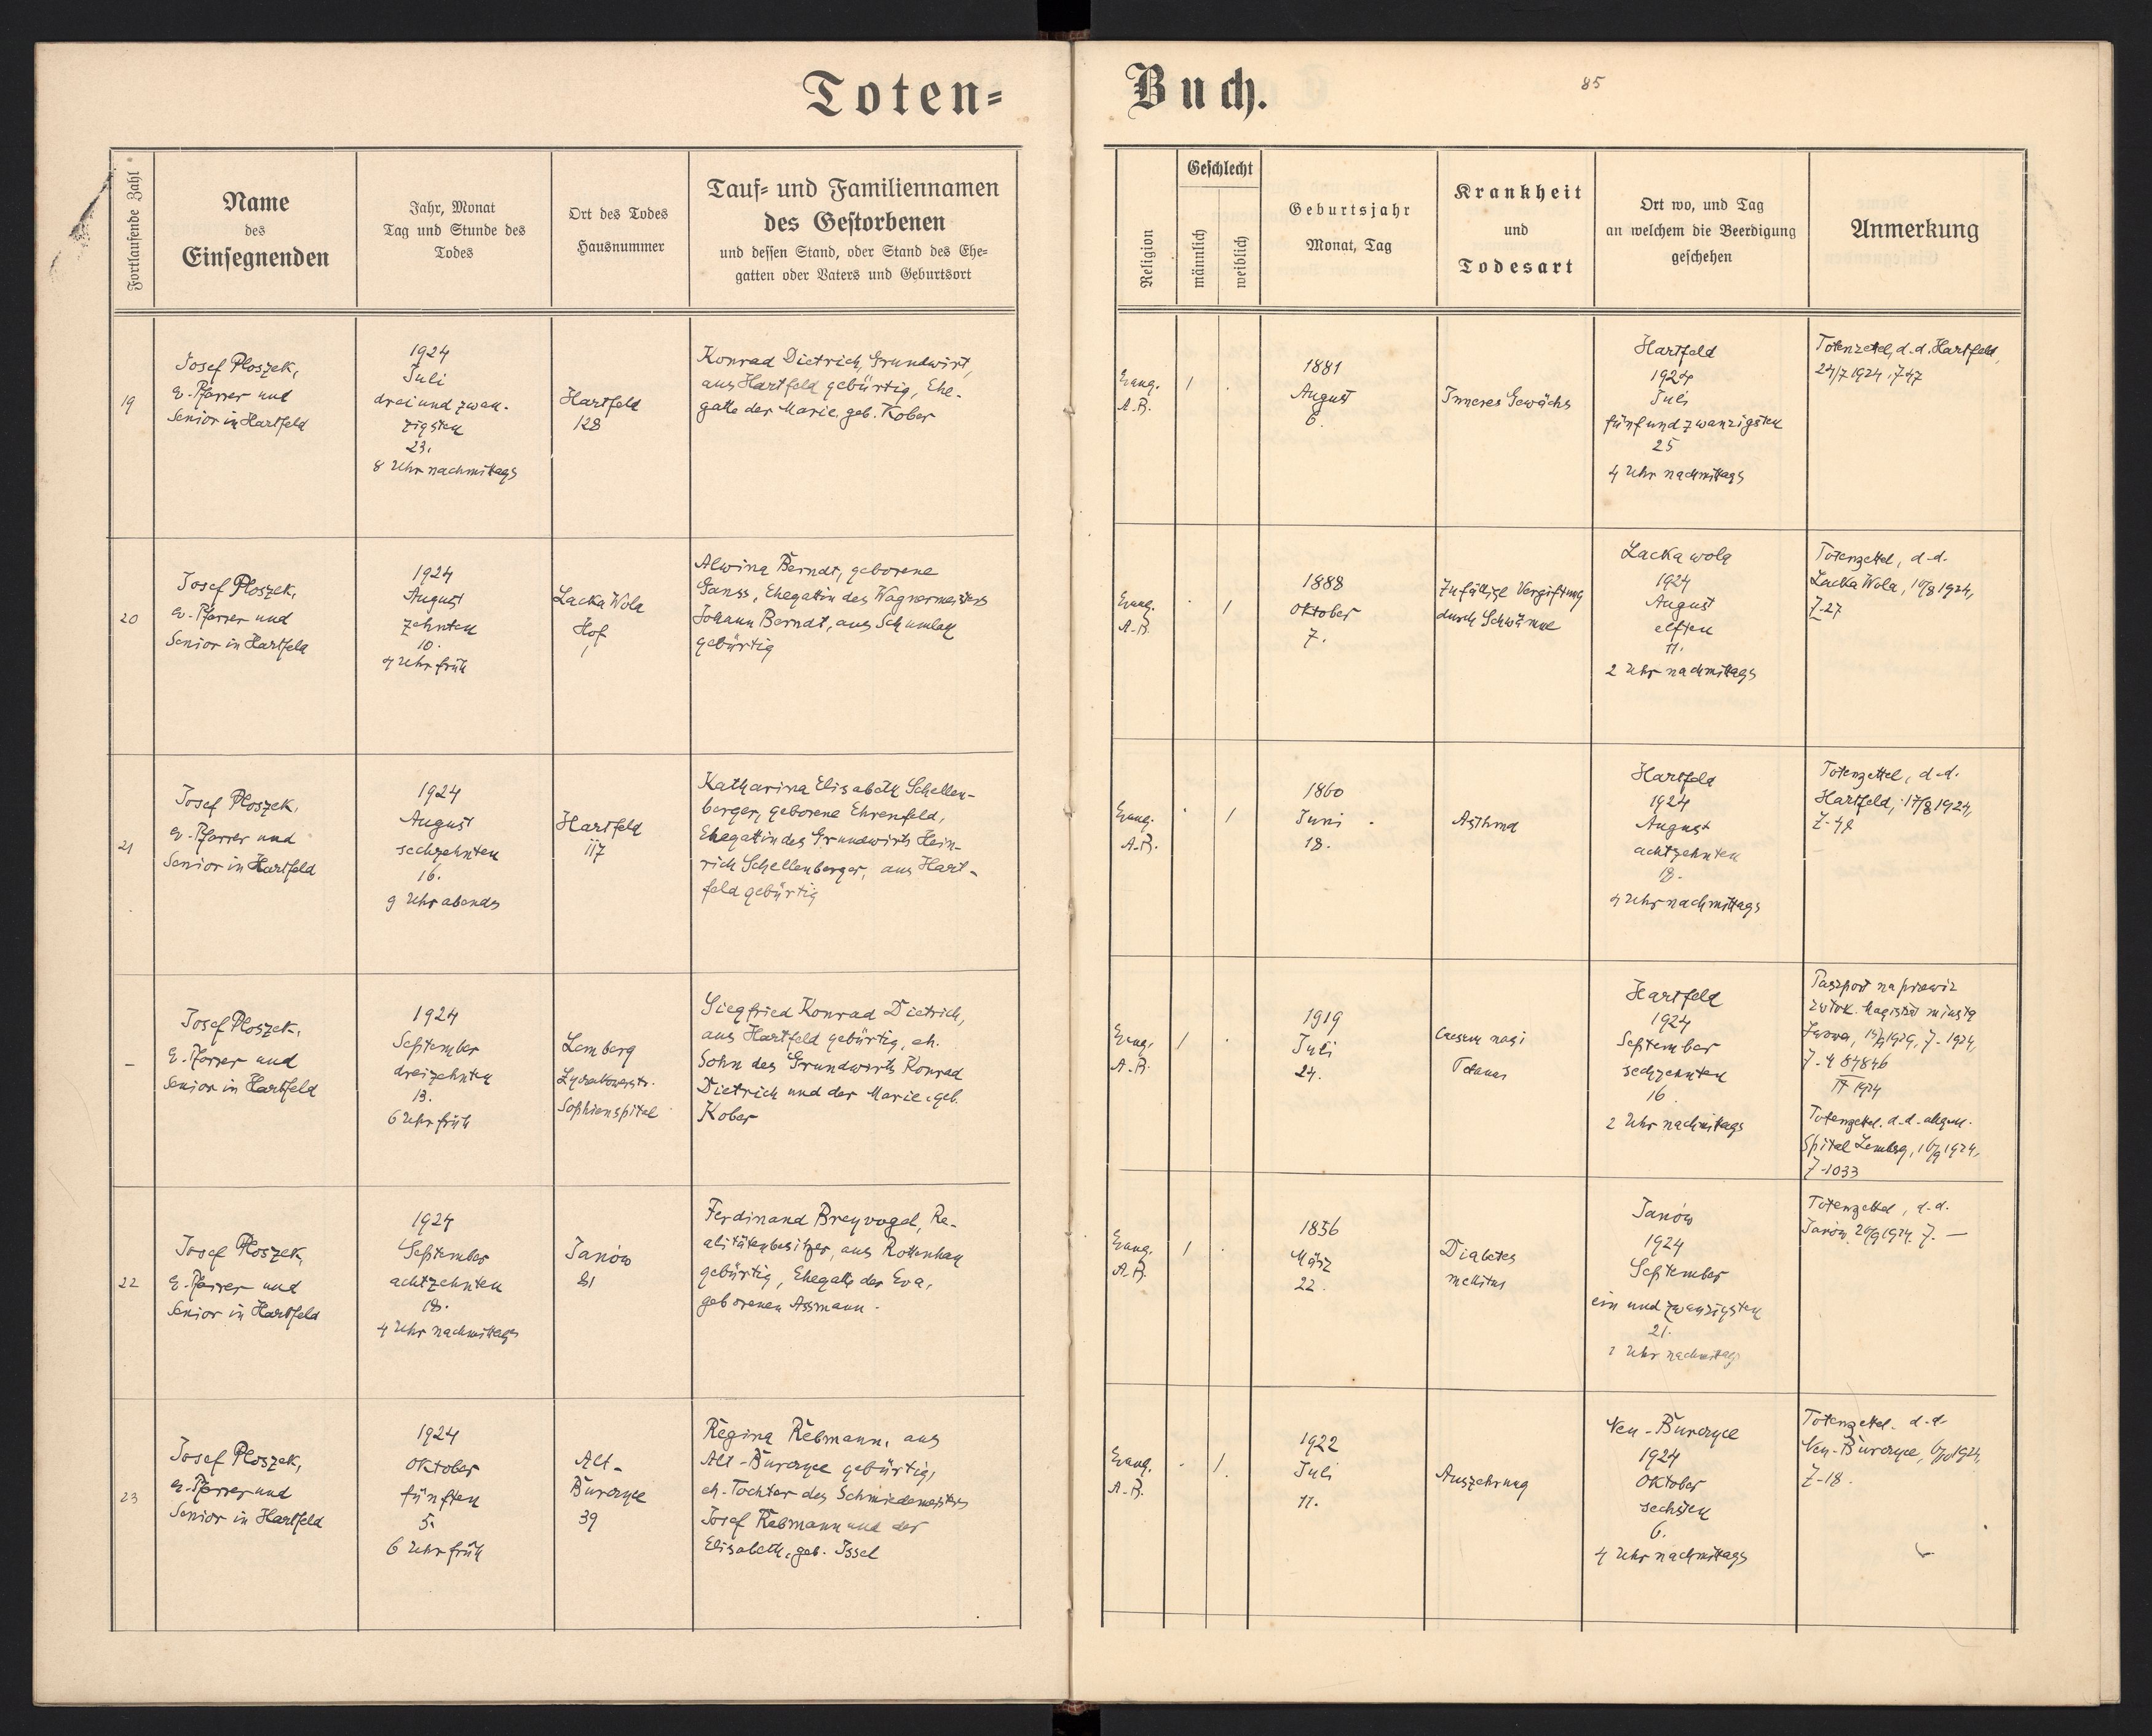 Toten=
Buch.
85
Fortlaufende Zahl
Name
des
Einsegnenden
Jahr, Monat
Tag und Stunde des
Todes
Ort des Todes
Hausnummer
Tauf= und Familiennamen
des Gestorbenen
und dessen Stand, oder Stand des Ehe=
gatten oder Vaters und Geburtsort
Religion
Geschlecht
männlich
weiblich
Geburtsjahr
Monat, Tag
Krankheit
und
Todesart
Ort wo, und Tag
an welchem die Beerdigung
geschehen
Anmerkung
19
Josef Ploszek,
ev. Pfarrer und
Senior in Hartfeld
1924
Juli
dreiundzwan-
zigsten
23.
8 Uhr nachmittags
Hartfeld
128
Konrad Dietrich, Grundwirt,
aus Hartfeld gebürtig, Ehe-
gatte der Marie, geb. Kober
Evang.
A.B.
1
.
1881
August
6.
Inneres Gewächs
Hartfeld
1924
Juli
fünfundzwanzigsten
25
4 Uhr nachmittags
Totenzettel, d.d. Hartfeld,
24/7 1924, Z-47
20
Josef Ploszek,
ev. Pfarrer und
Senior in Hartfeld
1924
August
zehnten
10.
4 Uhr früh
Lacka Wola
Hof
1
Alwina Berndt, geborene
Ganss, Ehegattin des Wagnermeisters
Johann Berndt, aus Schumlau
gebürtig
Evang.
A.B.
.
1
1888
Oktober
7.
Zufällige Vergiftung
durch Schwämme
Lacka wola
1924
August
elften
11.
2 Uhr nachmittags
Totenzettel, d.d.
Lacka Wola, 10/8 1924,
Z-27
21
Josef Ploszek,
ev. Pfarrer und
Senior in Hartfeld
1924
August
sechzehnten
16.
9 Uhr abends
Hartfeld
117
Katharina Elisabeth Schellen-
berger, geborene Ehrenfeld,
Ehegattin des Grundwirts Hein-
rich Schellenberger, aus Hart-
feld gebürtig
Evang.
A.B.
.
1
1860
Juni
18.
Asthma
Hartfeld
1924
August
achtzehnten
18.
4 Uhr nachmittags
Totenzettel, d.d.
Hartfeld, 17/8 1924,
Z-48
–
Josef Ploszek,
ev. Pfarrer und
Senior in Hartfeld
1924
September
dreizehnten
13.
6 Uhr früh
Lemberg
Lyczakowerstr.
Sophienspital
Siegfried Konrad Dietrich,
aus Hartfeld gebürtig, eh.
Sohn des Grundwirts Konrad
Dietrich und der Marie, geb.
Kober
Evang.
A.B.
1
.
1919
Juli
24.
nasi
Tetanus
Hartfeld
1924
September
sechzehnten
16
2 Uhr nachmittags
Paszport na przewóz
zwłok. Magistrat miasta
Lwowa, 1924,
84846
IX 1924
Totenzettel. d.d. allgem.
Spital Lemberg, 16/9 1924,
Z-1033
22
Josef Ploszek,
ev. Pfarrer und
Senior in Hartfeld
1924
September
achtzehnten
18.
4 Uhr nachmittags
Janów
81
Ferdinand Breyvogel, Re-
alitätenbesitzer, aus Rottenhan
gebürtig, Ehegatte der Eva,
geborenen Assmann.
Evang.
A.B.
1
.
1856
März
22.
Diabetes
mellitus
Janów
1924
September
ein und zwanzigsten
21.
Uhr nachmittag
Totenzettel, d.d.
Janów, 20/9 1924, Z. —
23
Josef Ploszek,
ev. Pfarrer und
Senior in Hartfeld
1924
Oktober
fünften
5.
6 Uhr früh
Alt-
Burczyce
39
Regina Rebmann, aus
Alt-Burczyce gebürtig,
eh. Tochter des Schmiedemeisters
Josef Rebmann und der
Elisabeth, geb. Issel
Evang.
A.B.
.
1.
1922
Juli
11.
Auszehrung
Neu-Burczyce
1924
Oktober
sechsten
6.
4 Uhr nachmittags
Totenzettel. d.d.
Neu-Burczyce, 6/10 1924,
Z-18.